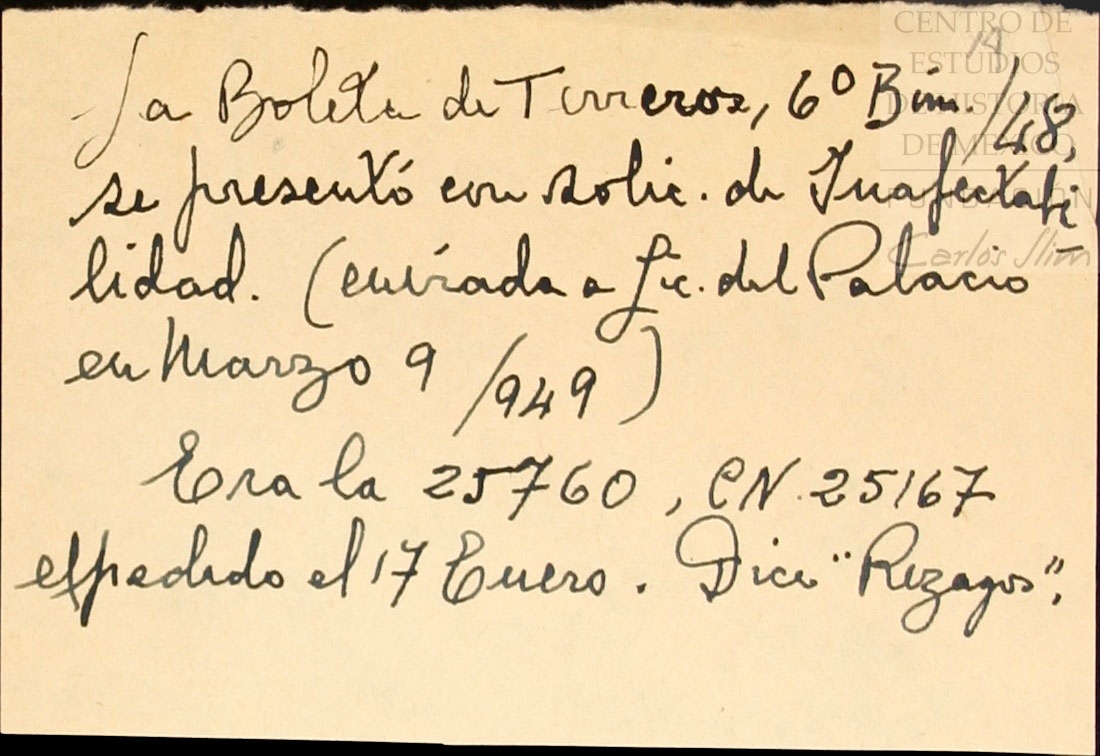 CENTRO DE
ESTUDIOS
DE HISTORIA
DE MÉXICO
FUNDACIÓN
Carlos Slim
La Boleta de Terreros, 6º Bim./48,
se presentó con solic. de Inafectabi
lidad. (enviada a Lic. del Palacio
en Marzo 9/949)
Era la 25760, CN. 25167
expedido el 17 Enero. Dice "Rezagos".